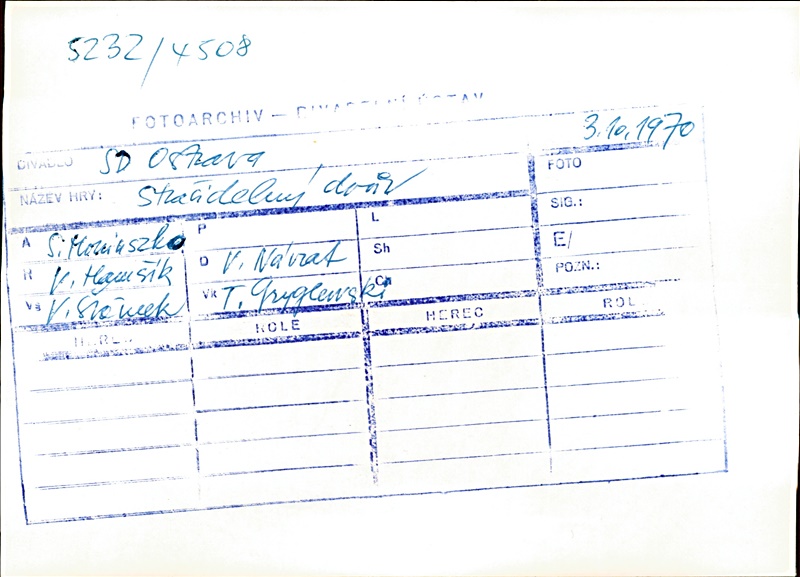 5232/4508
FOTOARCHIV — DIVADELNÍ ÚSTAV
3.10.1970
DIVADLO SD Ostrava
FOTO
NÁZEV HRY: Strašidelný dvůr
SIG.:
A S. Moniuszko P L
E/
R V. Hamšík D V. Návrat Sh
POZN.:
Vs Vk T. Gryglewski Ch
HEREC ROLE HEREC ROL